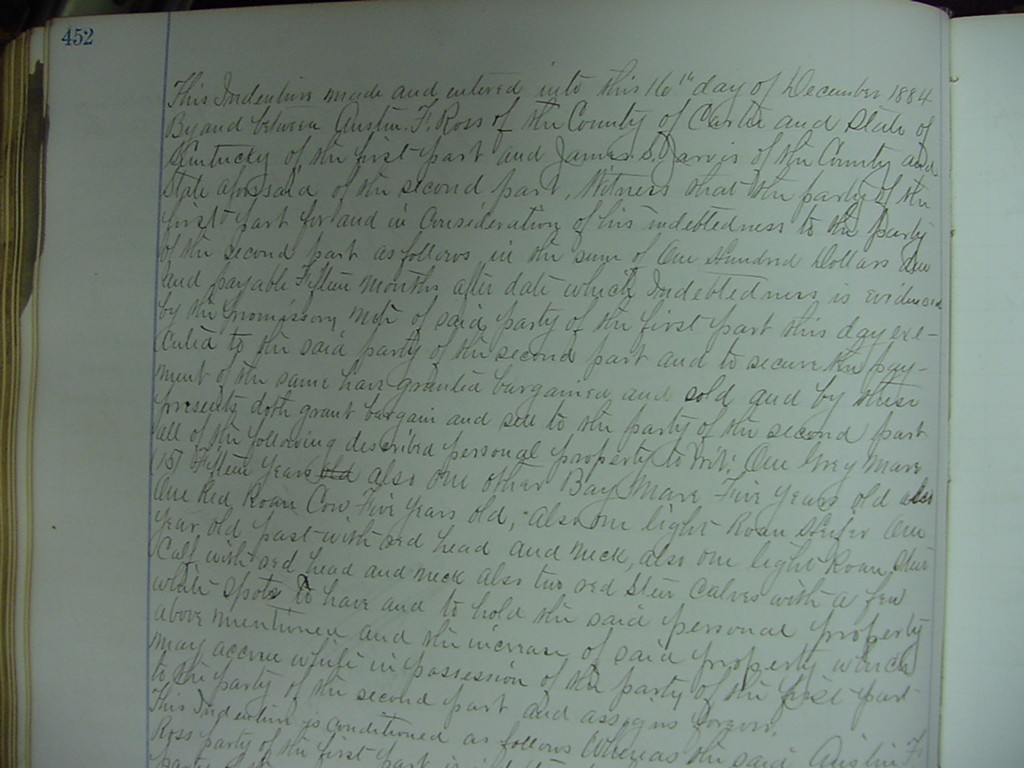 452
This Indenture made and entered into this 16th day of December 1884
By and between Austin. F. Ross of the County of Carter and State of
Kentucky of the first part and James S. Jarvis of the County and
State aforesaid of the second part, Witness that the party of the
first part for and in Consideration of his indebtedness to the party
of the second part as follows in the sum of One Hundred Dollars due
and payable Fifteen Months after date which Indebtedness is evidenced
by the promissory note of said party of the first part this day exe-
cuted to the said party of the second part and to secure the pay-
ment of the same have granted bargained and sold and by these
presents doth grant bargain and sell to the party of the second part
all of the following described personal property to wit: One Grey Mare
(15) Fifteen Years old also one other Bay Mare Five Years old also
One Red Roan Cow Five Years old, also one light Roan Heifer One
year old past with red head and neck, also one light Roan Steer
Calf with red head and neck also two red Steer Calves with a few
white spots To have and to hold the said personal property
above mentioned and the increase of said property which
may accrue while in possession of the party of the first part
to the party of the second part and assigns forever.
This Indenture is conditioned as follows Whereas the said Austin F.
Ross party of the first part